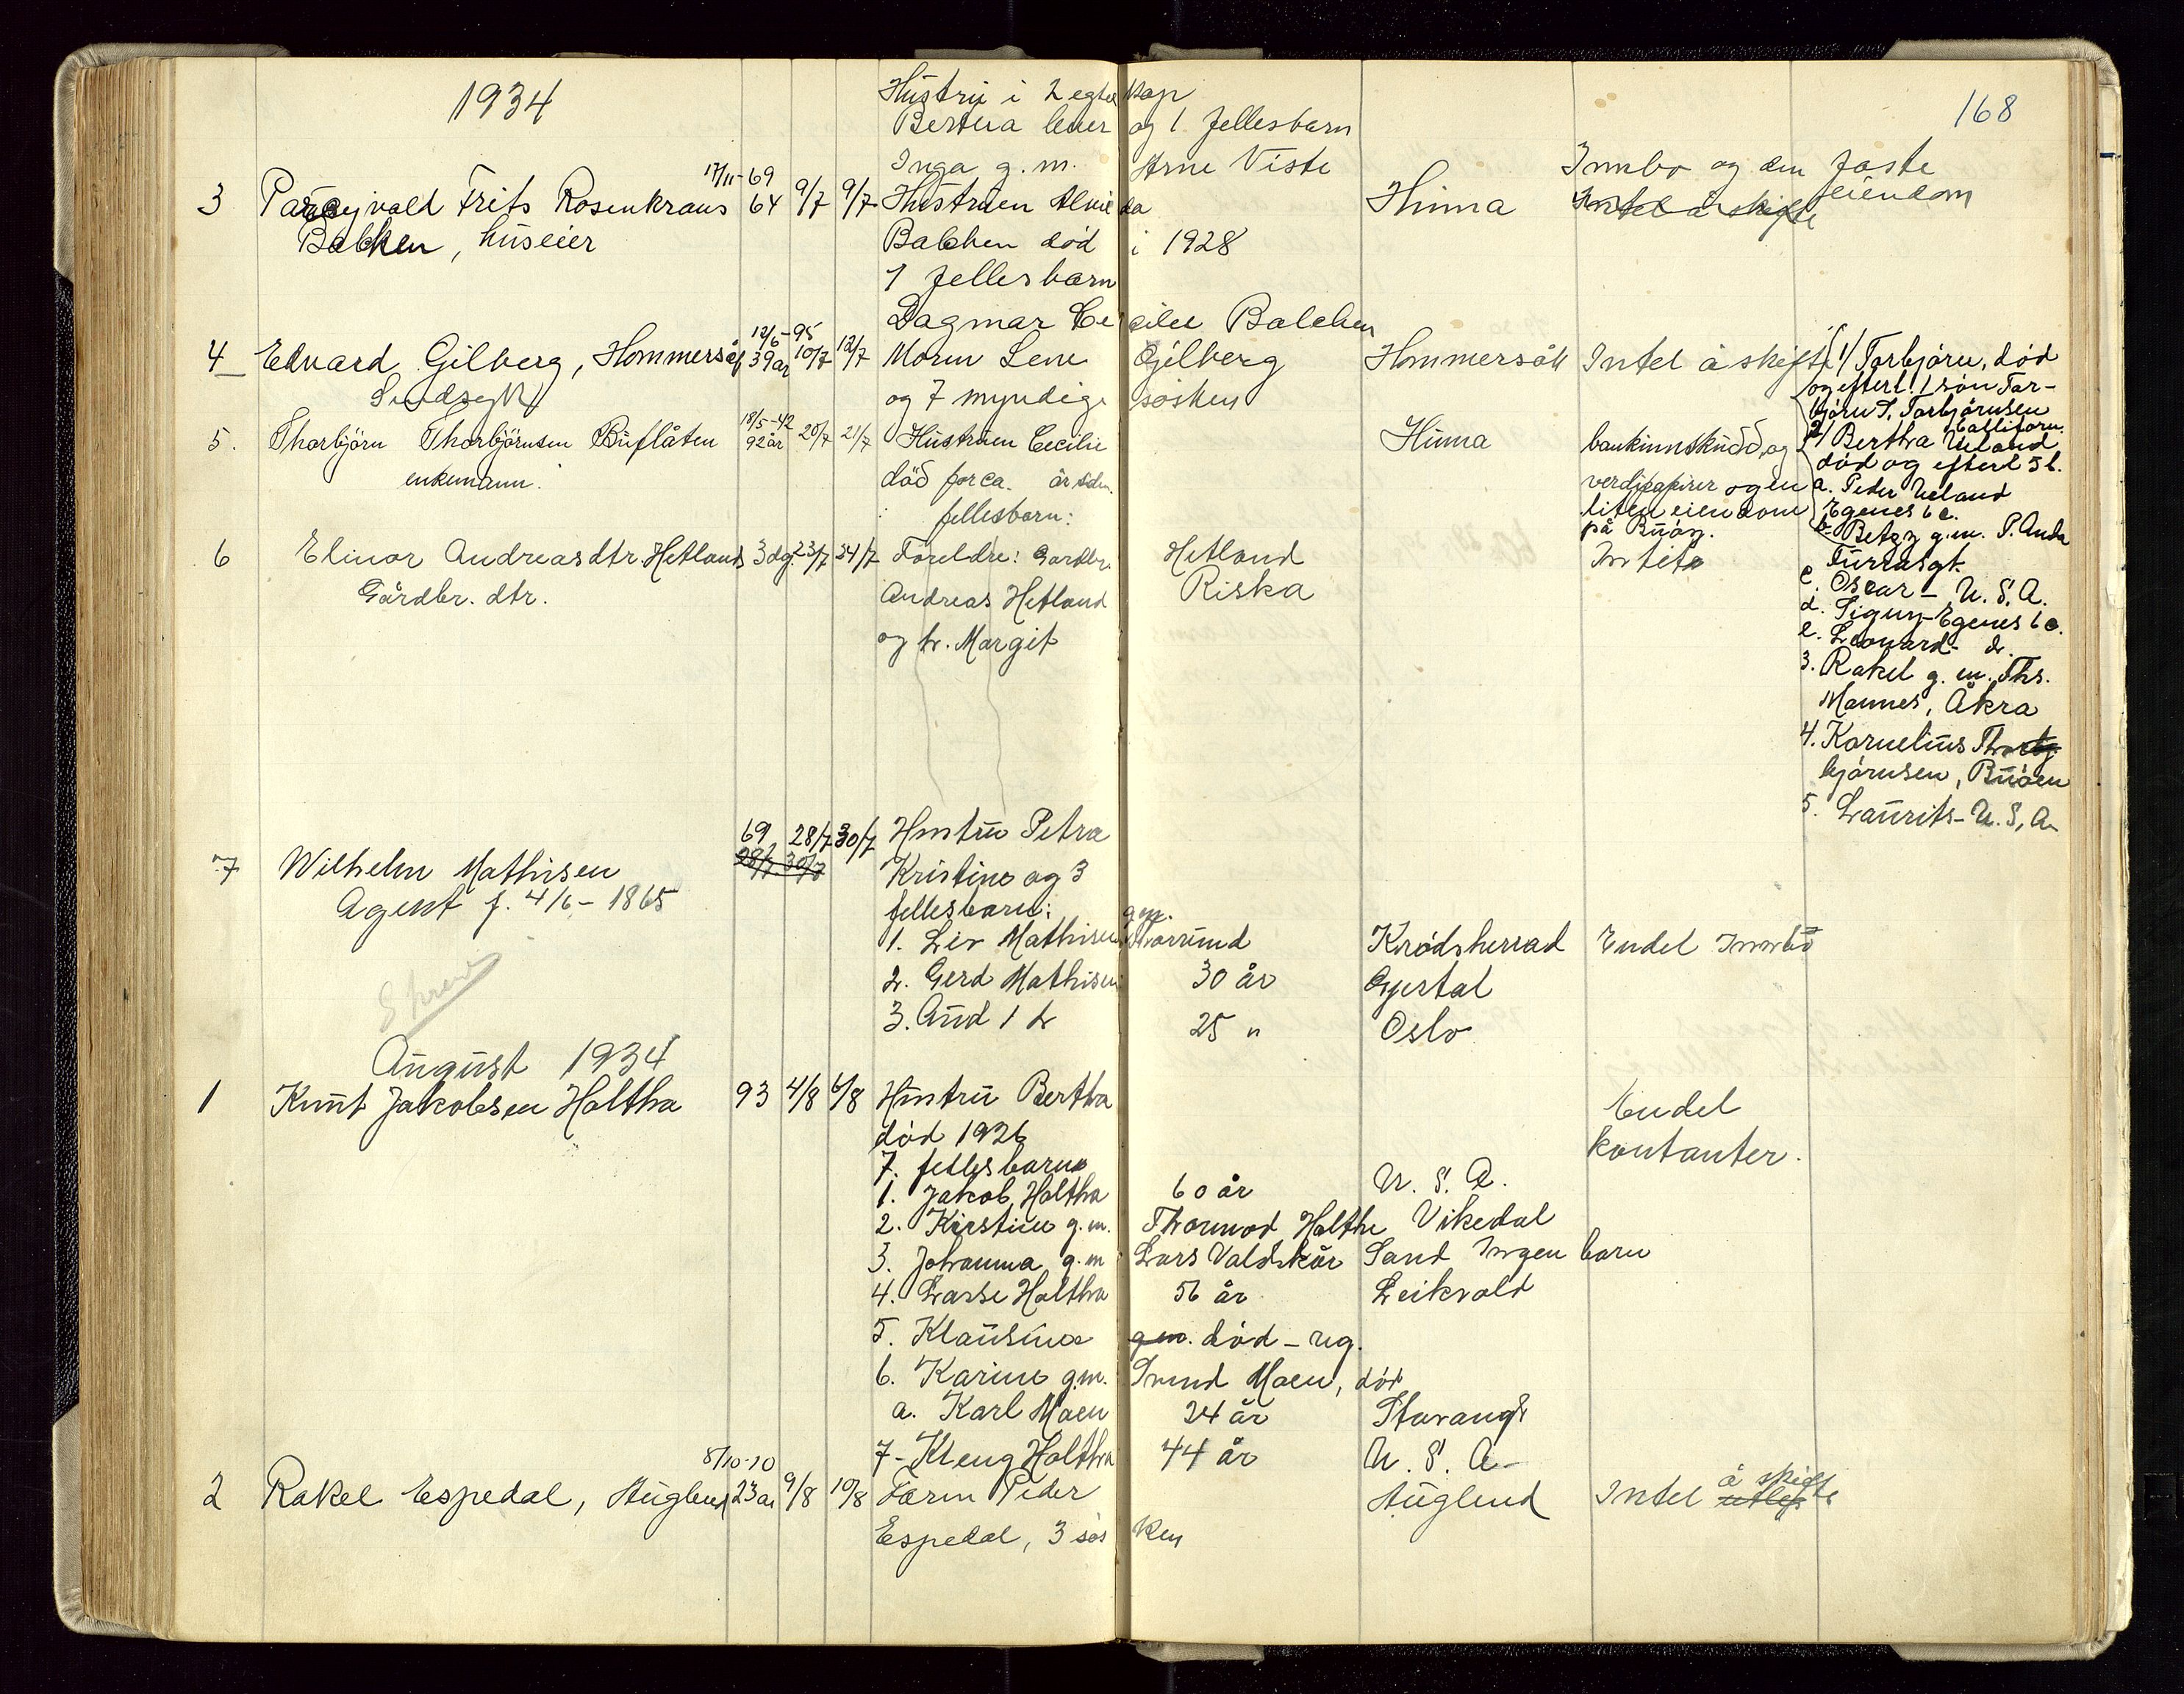 1934
168
Hustru i 2 egteskap
Bertha lever og 1 fellesbarn
Inga g. m. Arne Viste
17/11-69
Innbo og den faste
3 Frits Rosenkrans 64 9/7 9/7 Hustruen Hinna Intet å skifte eiendom
Balchen, huseier Balchen død i 1928
1 fellesbarn
Dagmar Cecilie Balchen
12/6-95
4 Edvard Gilberg, Hommersåk 39 år 10/7 12/7 Moren Lene Gilberg Hommersåk Intet å skifte
og 7 myndige søsken
18/5-42
5. Thorbjørn Thorbjørnsen Buflåten 92 år 20/7 21/7 Hustruen Cecilie Hinna bankinnskudd, og
enkemann. død for ca. år sdn. verdipapirer og en
fellesbarn: liten eiendom
på Buøy.
1/ Torbjørn, død
og efterl. 1 søn Tor-
bjørn T. Torbjørnsen
Californ.
2/ Bertha Ueland
død og efterl 5 b.
a. Peder Ueland
Egenes 6 c.
b. Betzy g.m. P. Anda
c. Oscar - U. S. A.
d. Signy - Egenes 6 c.
e. Leonard - d.
3. Rakel g. m. Ths.
Mannes, Åkra
4. Kornelius Thor
bjørnsen, Buøen
5. Laurits - U. S. A.
6 Elinor Andreasdtr. Hetland 3 dg. 23/7 24/7 Foreldre: Gardbr. Hetland Intet
Gårdbr. dtr. Andreas Hetland Riska
og h. Margit
69 28/7 30/7 Hustru Petra
28/7 30/7
7 Wilhelm Mathisen Kristine og 3
Agent f. 4/6 - 1865 fellesbarn:
g.m.
1. Liv Mathisen Krødsherrad Endel Innbo
2. Gerd Mathisen 30 år
3. Aud 1 d 25 " Oslo
August 1934
1 Knut Jakobsen Holtha 93 4/8 6/8 Hustru Bertha Endel
død 1926 kontanter.
7. fellesbarn
1. Jakob Holtha 60 år U. S. A.
2. Kirstine g. m. Thormod Holthe Vikedal
3. Johanna g. m Lars Valskår Sand Ingen barn
4. Lasse Holtha 56 år Leikvold
5. Klausine gm. død - ug.
6. Karine g.m. Moen, død
a. Karl Moen 24 år Stavanger
7 - Kleng Holtha 44 år U. S. A.
8/10-10
2 Rakel Espedal, Auglend 23 år 9/8 10/8 Faren Peder Auglend Intet å skifte
Espedal, 3 søsken